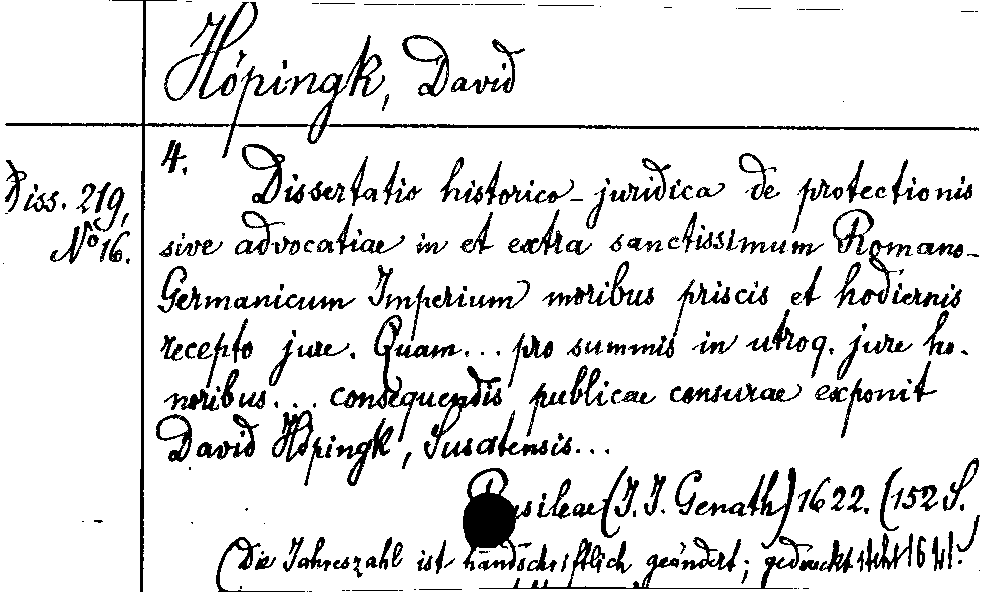 Höpingk, David
Diss. 219,
No 16.
4. Dissertatio historico-juridica de protectionis
sive advocatiae in et extra sanctissimum Romano-
Germanicum Imperium moribus priscis et hodiernis
recepto jure. Quam... pro summis in utroq. jure ho-
noribus... consequendis publicae censurae exponit
David Höpingk, Susatensis...
(J. J. Genath) 1622. (152 S.,
(Die Jahreszahl ist handschriftlich geändert; gedruckt steht